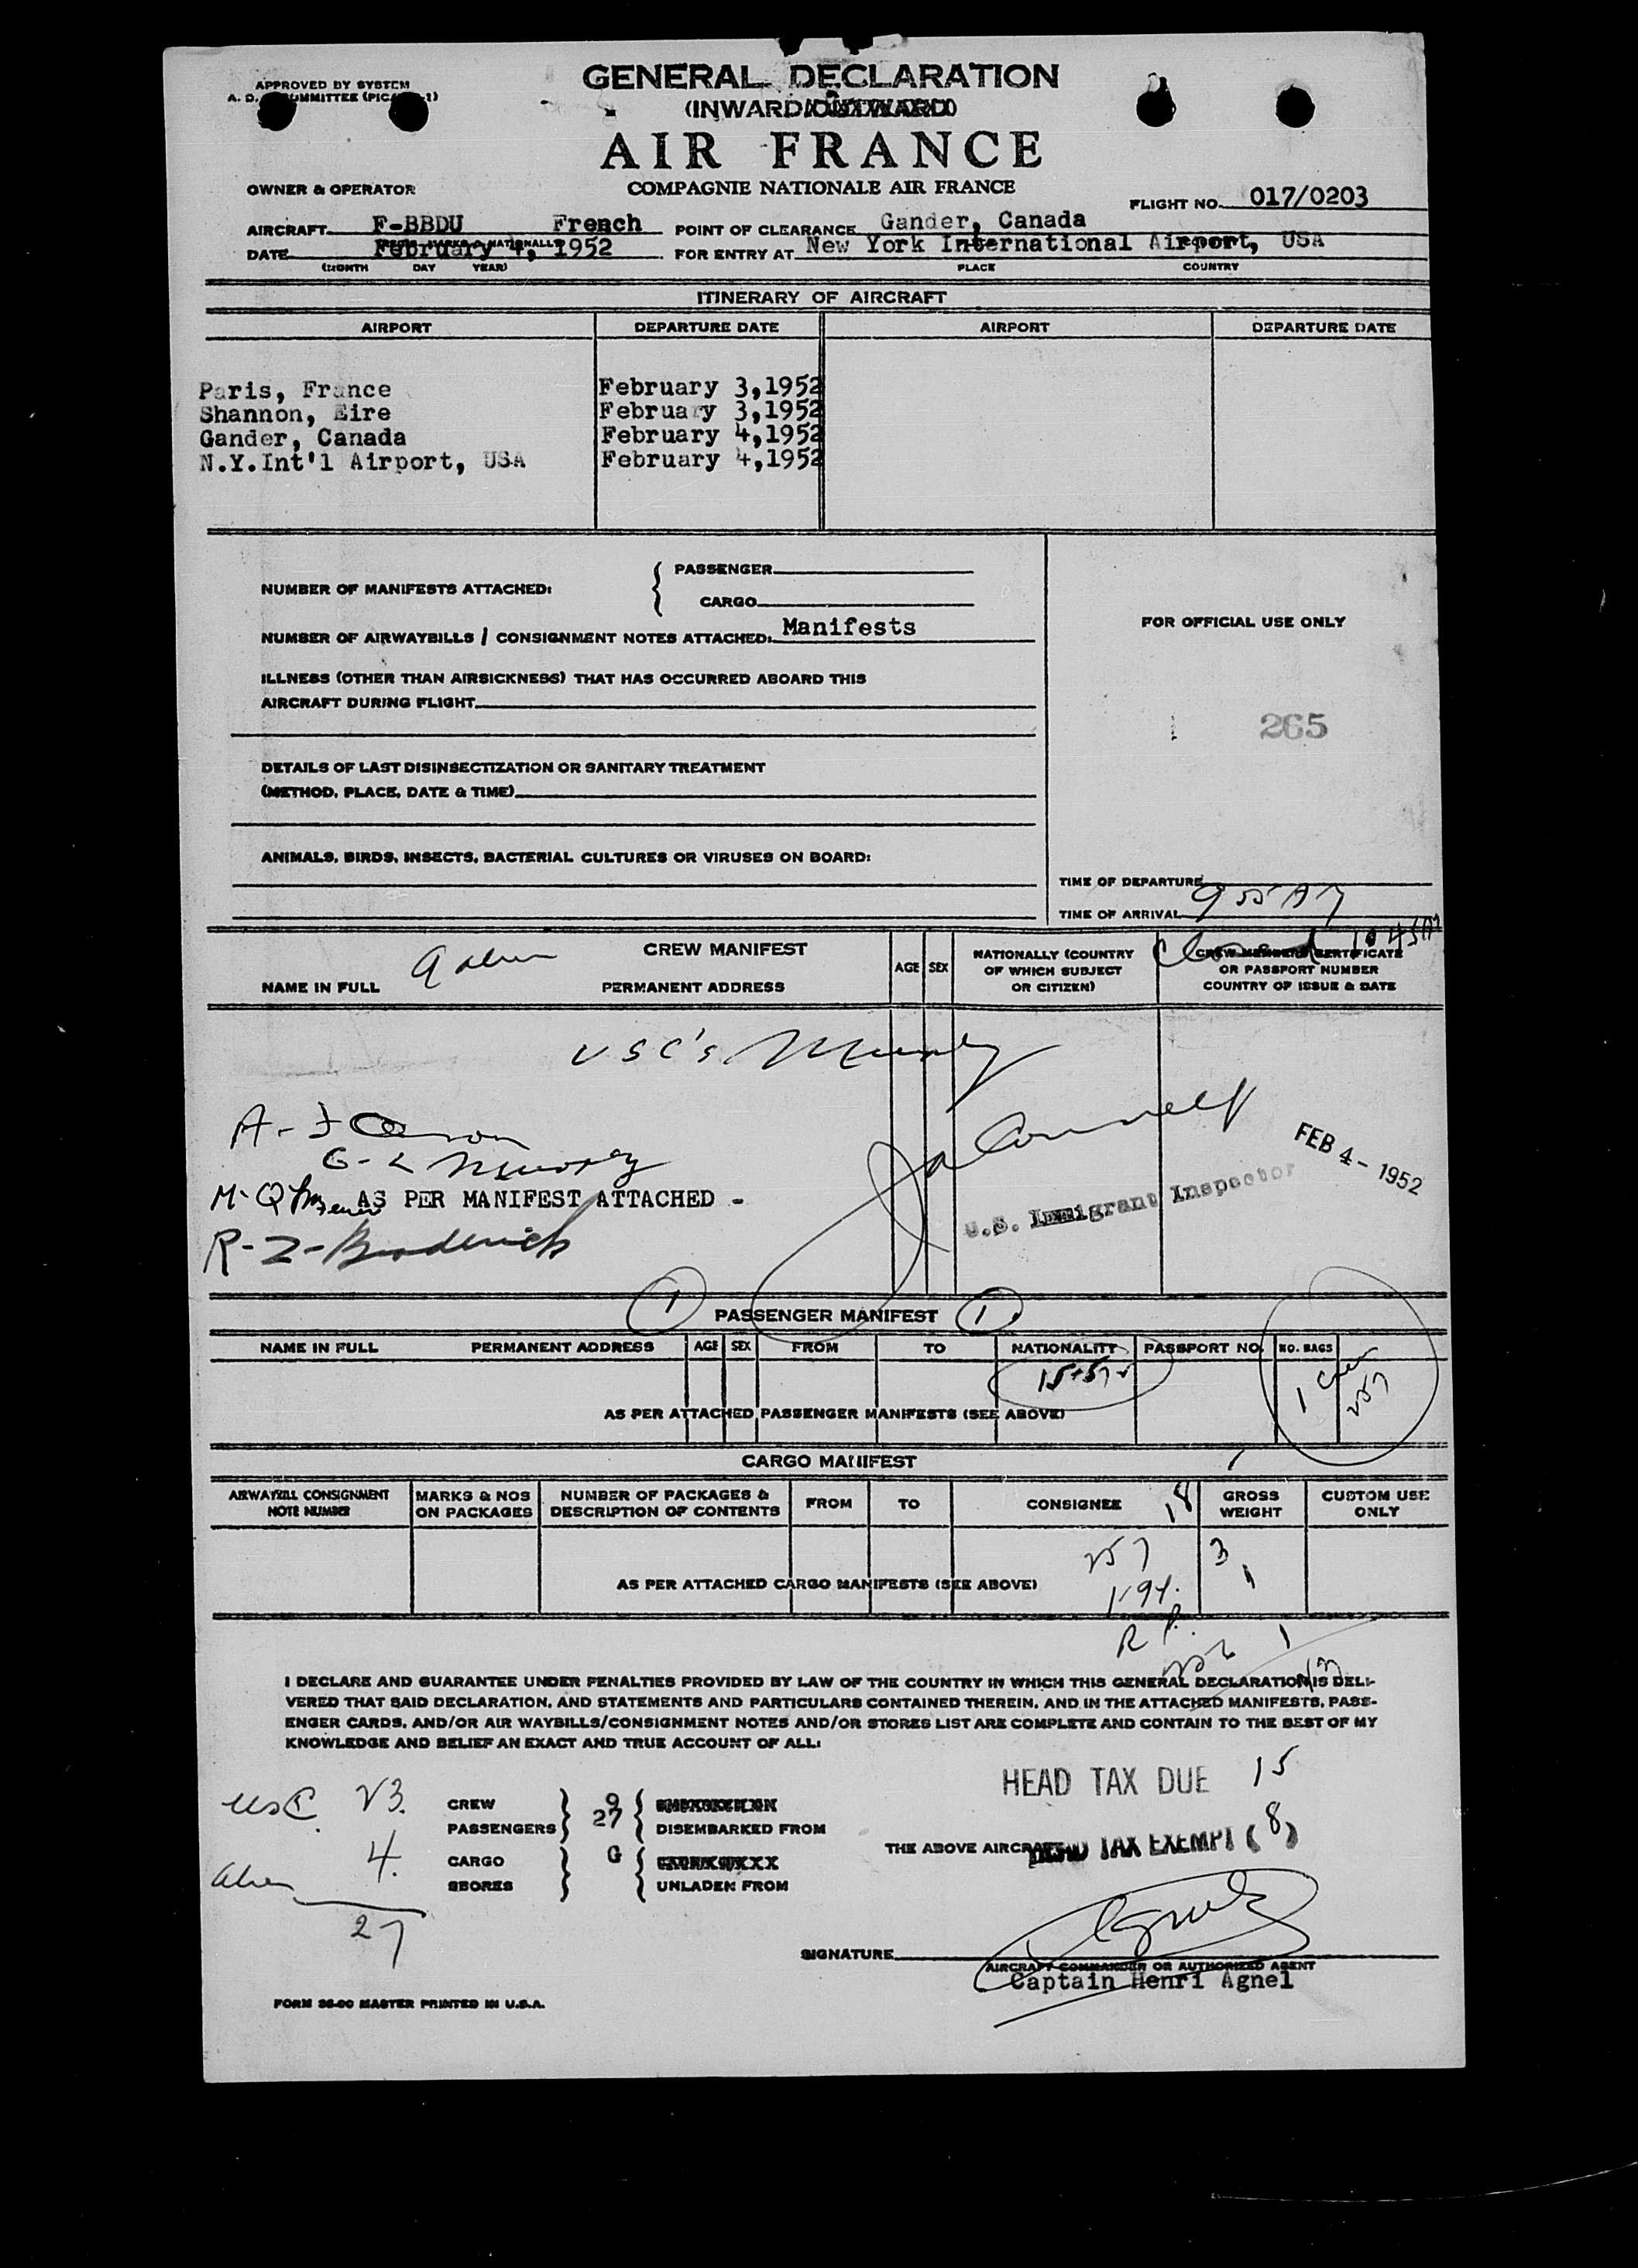 APPROVED BY SYSTEM
GENERAL DECLARATION
(INWARD
AIR FRANCE
COMPAGNIE NATIONALE AIR FRANCE
OWNER & OPERATOR
FLIGHT NO. 017/0203
AIRCRAFT F-BBDU French POINT OF CLEARANCE Gander, Canada
DATE February 4, 1952 FOR ENTRY AT New York International Airport, USA
(MONTH DAY YEAR) PLACE COUNTRY
ITINERARY OF AIRCRAFT
AIRPORT DEPARTURE DATE AIRPORT DEPARTURE DATE
Paris, France February 3,1952
Shannon, Eire February 3,1952
Gander, Canada February 4,1952
N.Y.Int'l Airport, USA February 4,1952
NUMBER OF MANIFESTS ATTACHED: { PASSENGER
CARGO
NUMBER OF AIRWAYBILLS / CONSIGNMENT NOTES ATTACHED: Manifests
FOR OFFICIAL USE ONLY
ILLNESS (OTHER THAN AIRSICKNESS) THAT HAS OCCURRED ABOARD THIS
AIRCRAFT DURING FLIGHT
265
DETAILS OF LAST DISINSECTIZATION OR SANITARY TREATMENT
(METHOD, PLACE, DATE & TIME)
ANIMALS, BIRDS, INSECTS, BACTERIAL CULTURES OR VIRUSES ON BOARD:
TIME OF DEPARTURE
TIME OF ARRIVAL 9 55 AM
Cleared 10 45 AM
9 alien CREW MANIFEST
NAME IN FULL PERMANENT ADDRESS AGE SEX NATIONALLY (COUNTRY
OF WHICH SUBJECT
OR CITIZEN)
CREW MEMBERS CERTIFICATE
OR PASSPORT NUMBER
COUNTRY OF ISSUE & DATE
USC's
FEB 4 - 1952
AS PER MANIFEST ATTACHED -
U.S. Immigrant Inspector
R-Z- Broderick
1 PASSENGER MANIFEST 1
NAME IN FULL PERMANENT ADDRESS AGE SEX FROM TO NATIONALITY PASSPORT NO. NO. BAGS
AS PER ATTACHED PASSENGER MANIFESTS (SEE ABOVE)
1 Crew
257
CARGO MANIFEST
AIRWAYBILL CONSIGNMENT
NOTE NUMBER
MARKS & NOS
ON PACKAGES
NUMBER OF PACKAGES &
DESCRIPTION OF CONTENTS
FROM TO CONSIGNEE 18 GROSS
WEIGHT
CUSTOM USE
ONLY
257 3
AS PER ATTACHED CARGO MANIFESTS (SEE ABOVE)
I-94. 1
R P.
I DECLARE AND GUARANTEE UNDER PENALTIES PROVIDED BY LAW OF THE COUNTRY IN WHICH THIS GENERAL DECLARATION IS DELI-
VERED THAT SAID DECLARATION, AND STATEMENTS AND PARTICULARS CONTAINED THEREIN, AND IN THE ATTACHED MANIFESTS, PASS-
ENGER CARDS, AND/OR AIR WAYBILLS/CONSIGNMENT NOTES AND/OR STORES LIST ARE COMPLETE AND CONTAIN TO THE BEST OF MY
KNOWLEDGE AND BELIEF AN EXACT AND TRUE ACCOUNT OF ALL:
HEAD TAX DUE 15
USC 23. CREW 9
PASSENGERS 27 DISEMBARKED FROM
THE ABOVE AIRCRAFT HEAD TAX EXEMPT (8)
4. CARGO G
Alien SBORES UNLADEN FROM
27
SIGNATURE
AIRCRAFT COMMANDER OR AUTHORIZED AGENT
Captain Henri Agnel
FORM 36-00 MASTER PRINTED IN U.S.A.